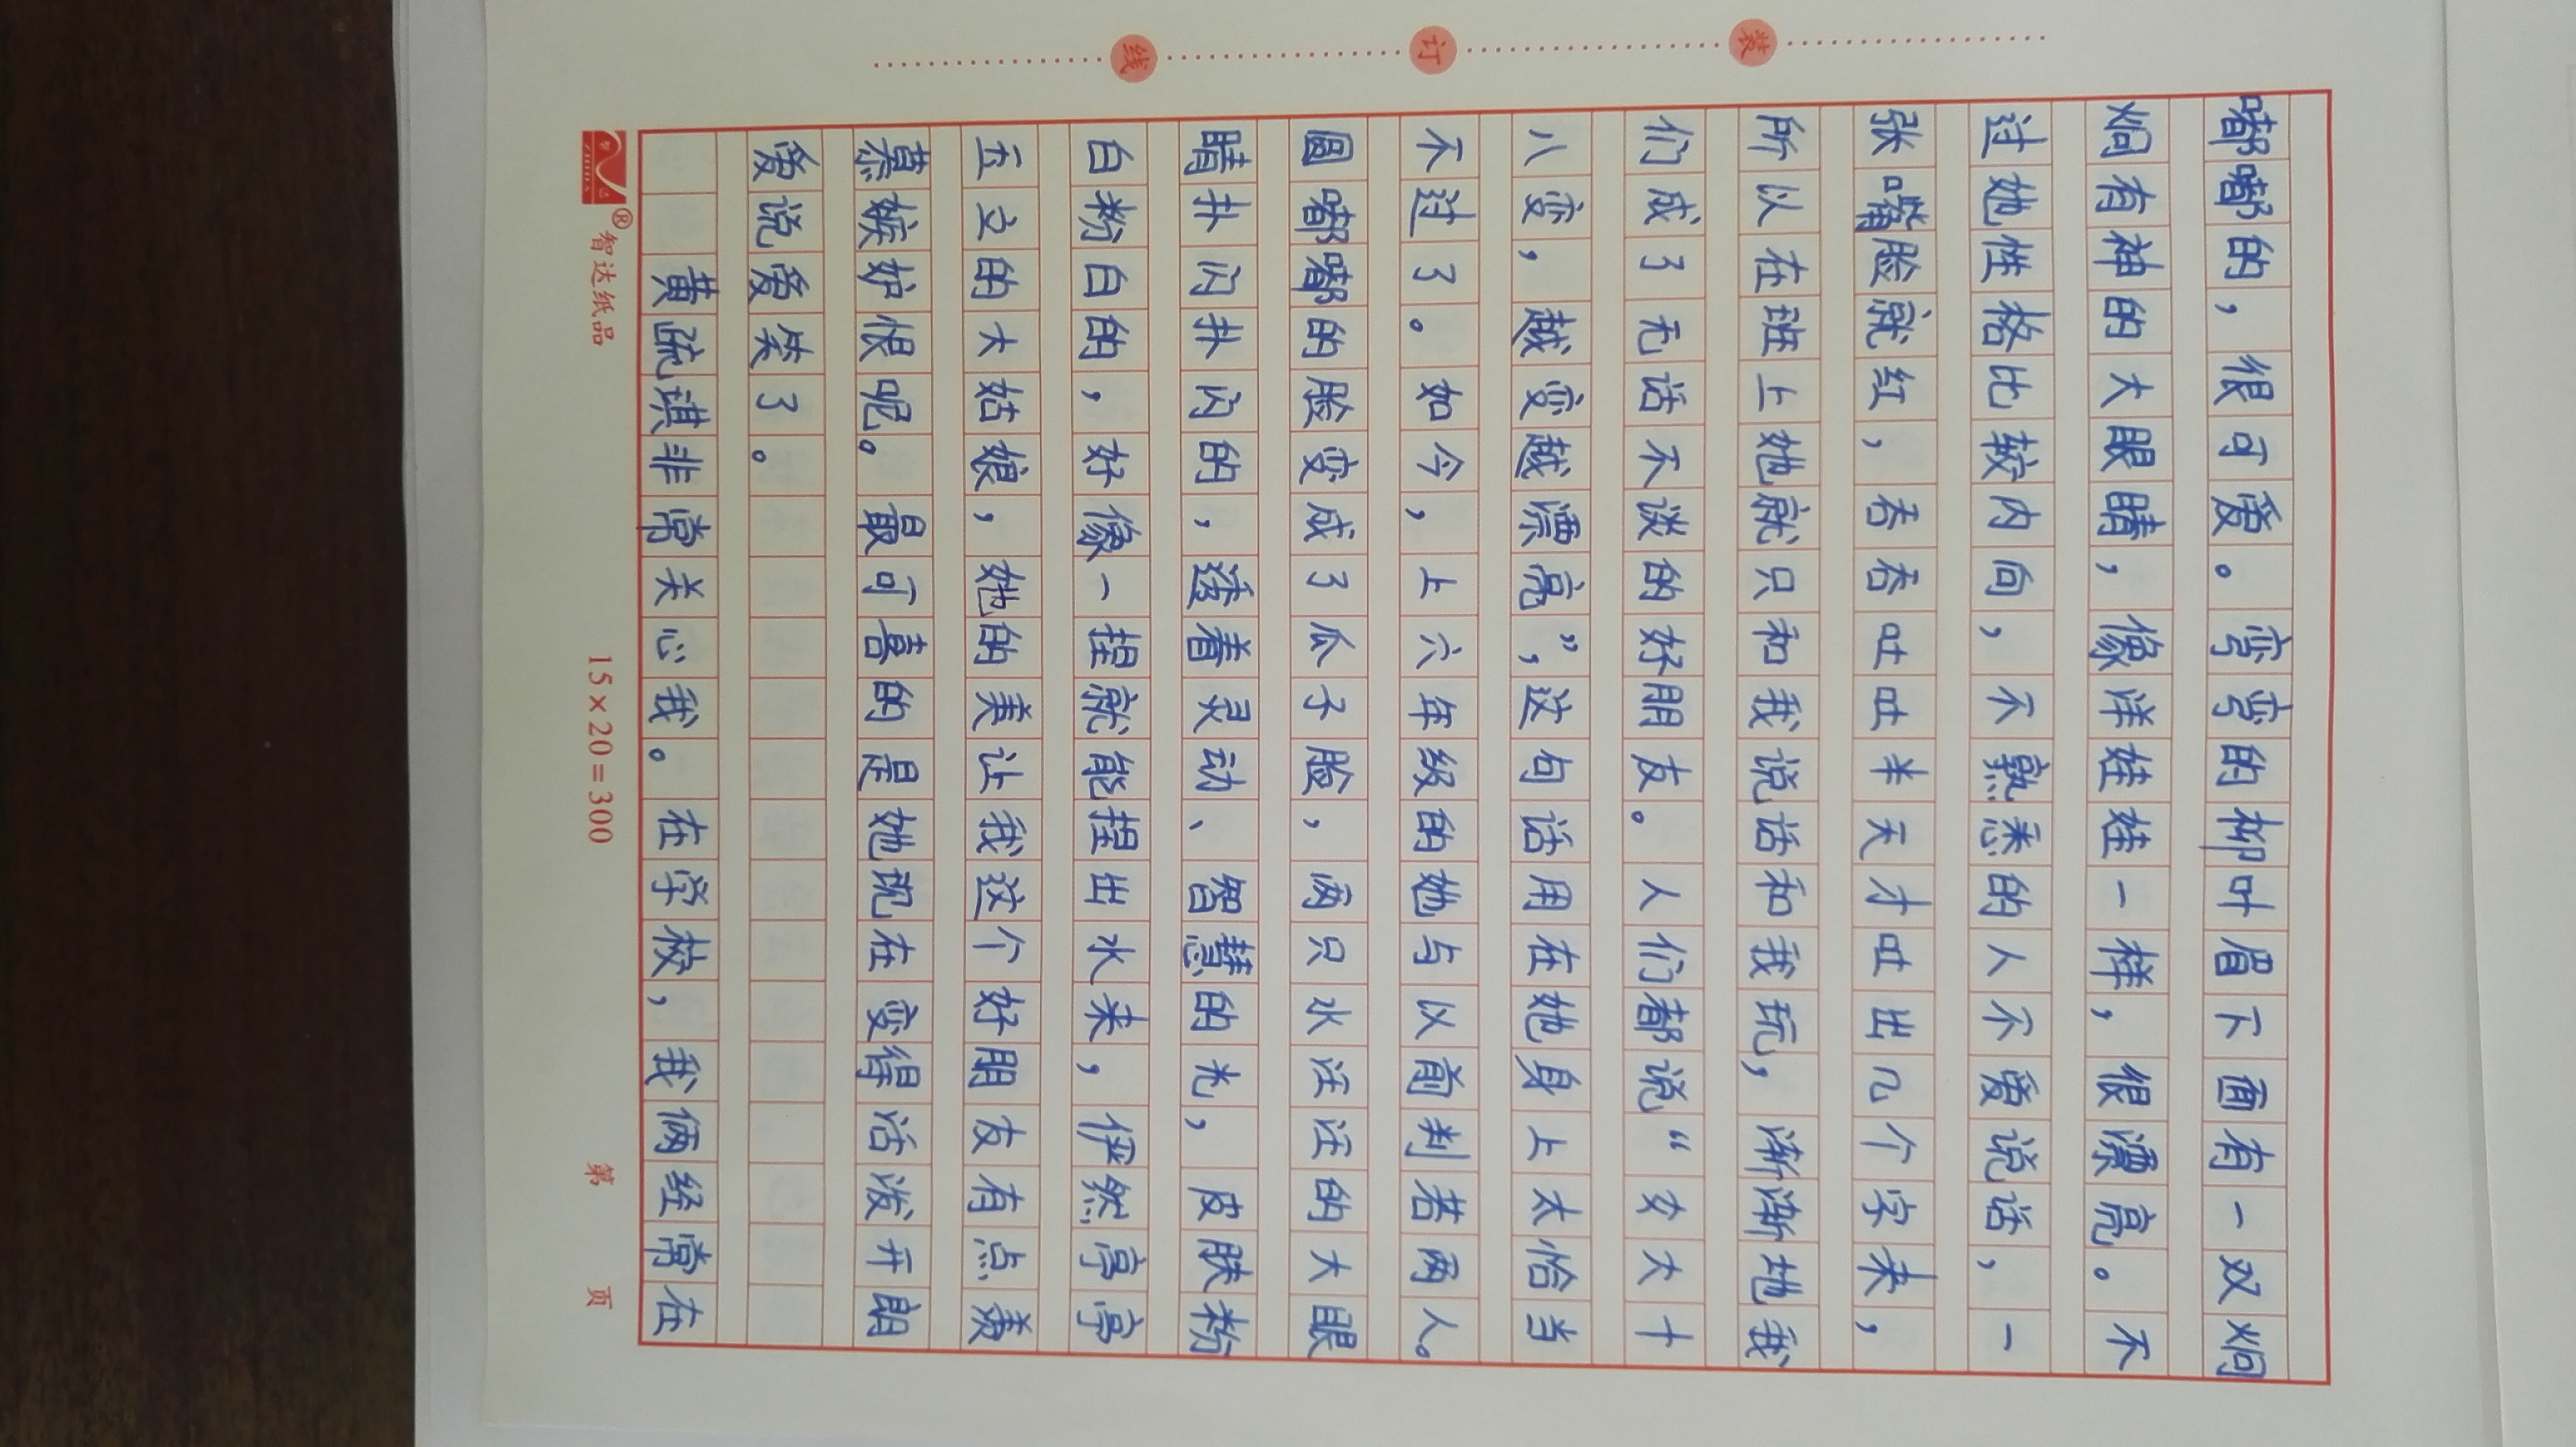 装 订 线
嘟嘟的，很可爱。弯弯的柳叶眉下面有一双炯
炯有神的大眼睛，像洋娃娃一样，很漂亮。不
过她性格比较内向，不熟悉的人不爱说话，一
张嘴脸就红，吞吞吐吐半天才吐出几个字来，
所以在班上她就只和我说话和我玩，渐渐地我
们成了无话不谈的好朋友。人们都说“女大十
八变，越变越漂亮”，这句话用在她身上太恰当
不过了。如今，上六年级的她与以前判若两人。
圆嘟嘟的脸变成了瓜子脸，两只水汪汪的大眼
睛扑闪扑闪的，透着灵动、智慧的光，皮肤粉
白粉白的，好像一捏就能捏出水来，俨然亭亭
玉立的大姑娘，她的美让我这个好朋友有点羡
慕嫉妒恨呢。最可喜的是她现在变得活泼开朗
爱说爱笑了。
黄疏琪非常关心我。在学校，我俩经常在
® 智达纸品 15×20=300 第 页